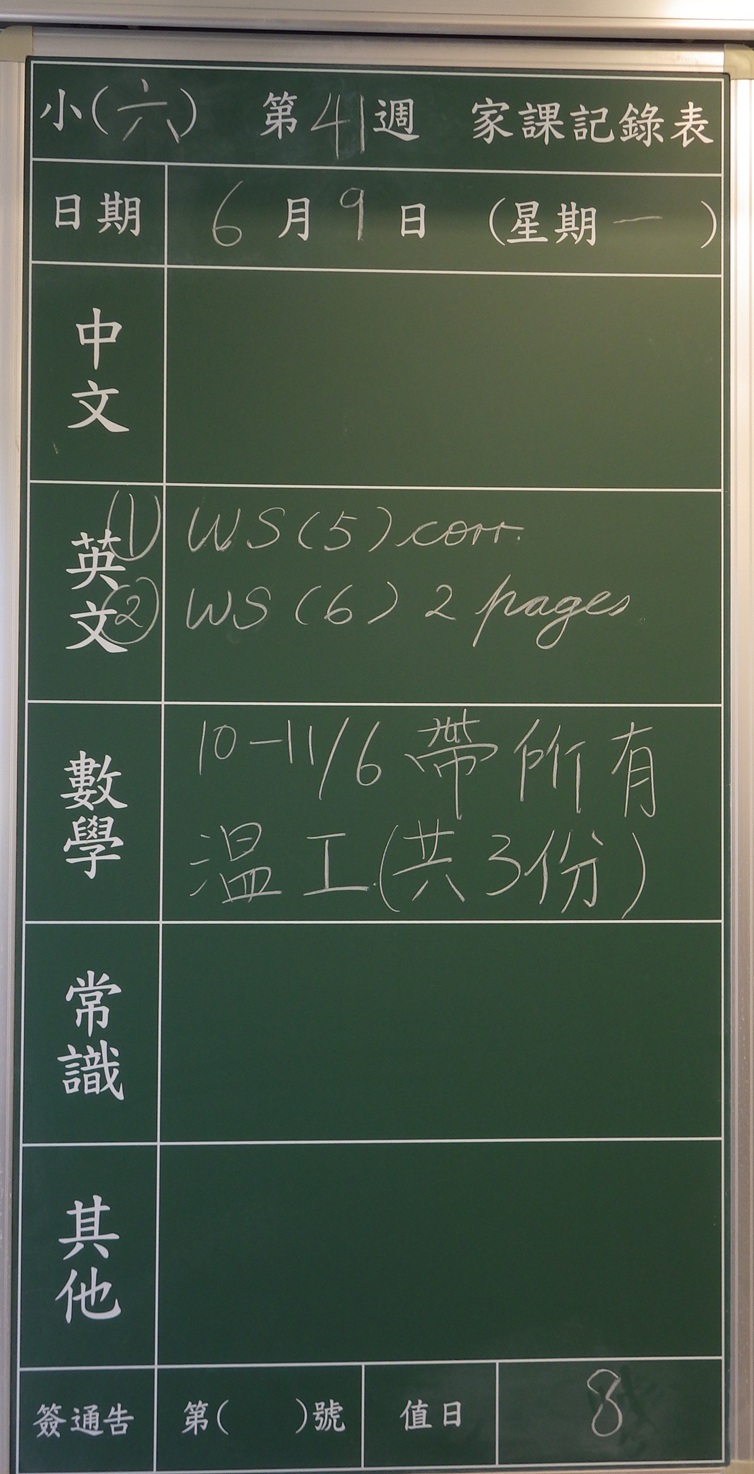 小(六) 第41週 家課記錄表
日期 6月9日 (星期一)
中文
英文
(1) WS(5) corr.
(2) WS(6) 2 pages
數學
10-11/6 帶所有
溫工(共3份)
常識
其他
簽通告 第( )號 值日 8